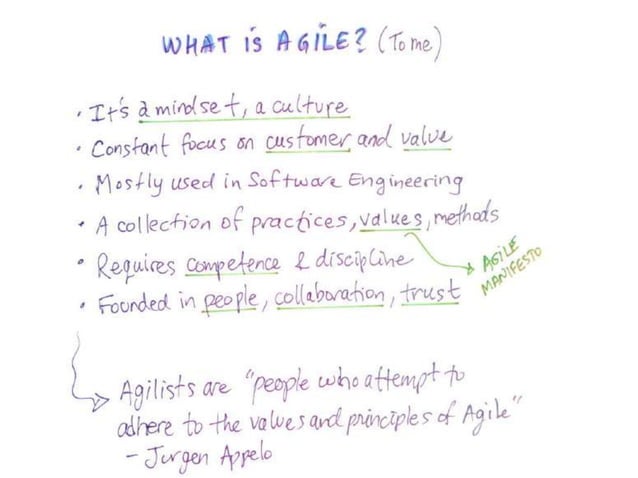 WHAT iS AGiLE? (To me)
• It's a mindset, a culture
• Constant focus on customer and value
• Mostly used in Software Engineering
• A collection of practices, values, methods
• Requires competence & discipline
AGILE
MANIFESTO
• Founded in people, collaboration, trust
Agilists are "people who attempt to
adhere to the values and principles of Agile"
- Jurgen Appelo